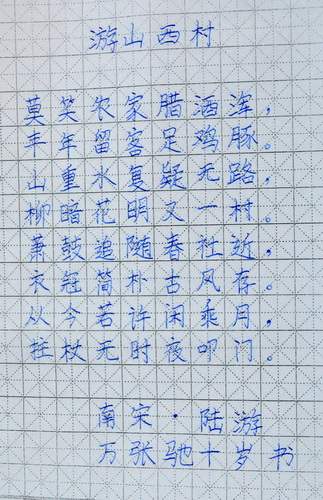 游山西村
莫笑农家腊酒浑,
丰年留客足鸡豚。
山重水复疑无路,
柳暗花明又一村。
萧鼓追随春社近,
衣冠简朴古风存。
从今若许闲乘月,
拄杖无时夜叩门。
南宋·陆游
万张驰十岁书